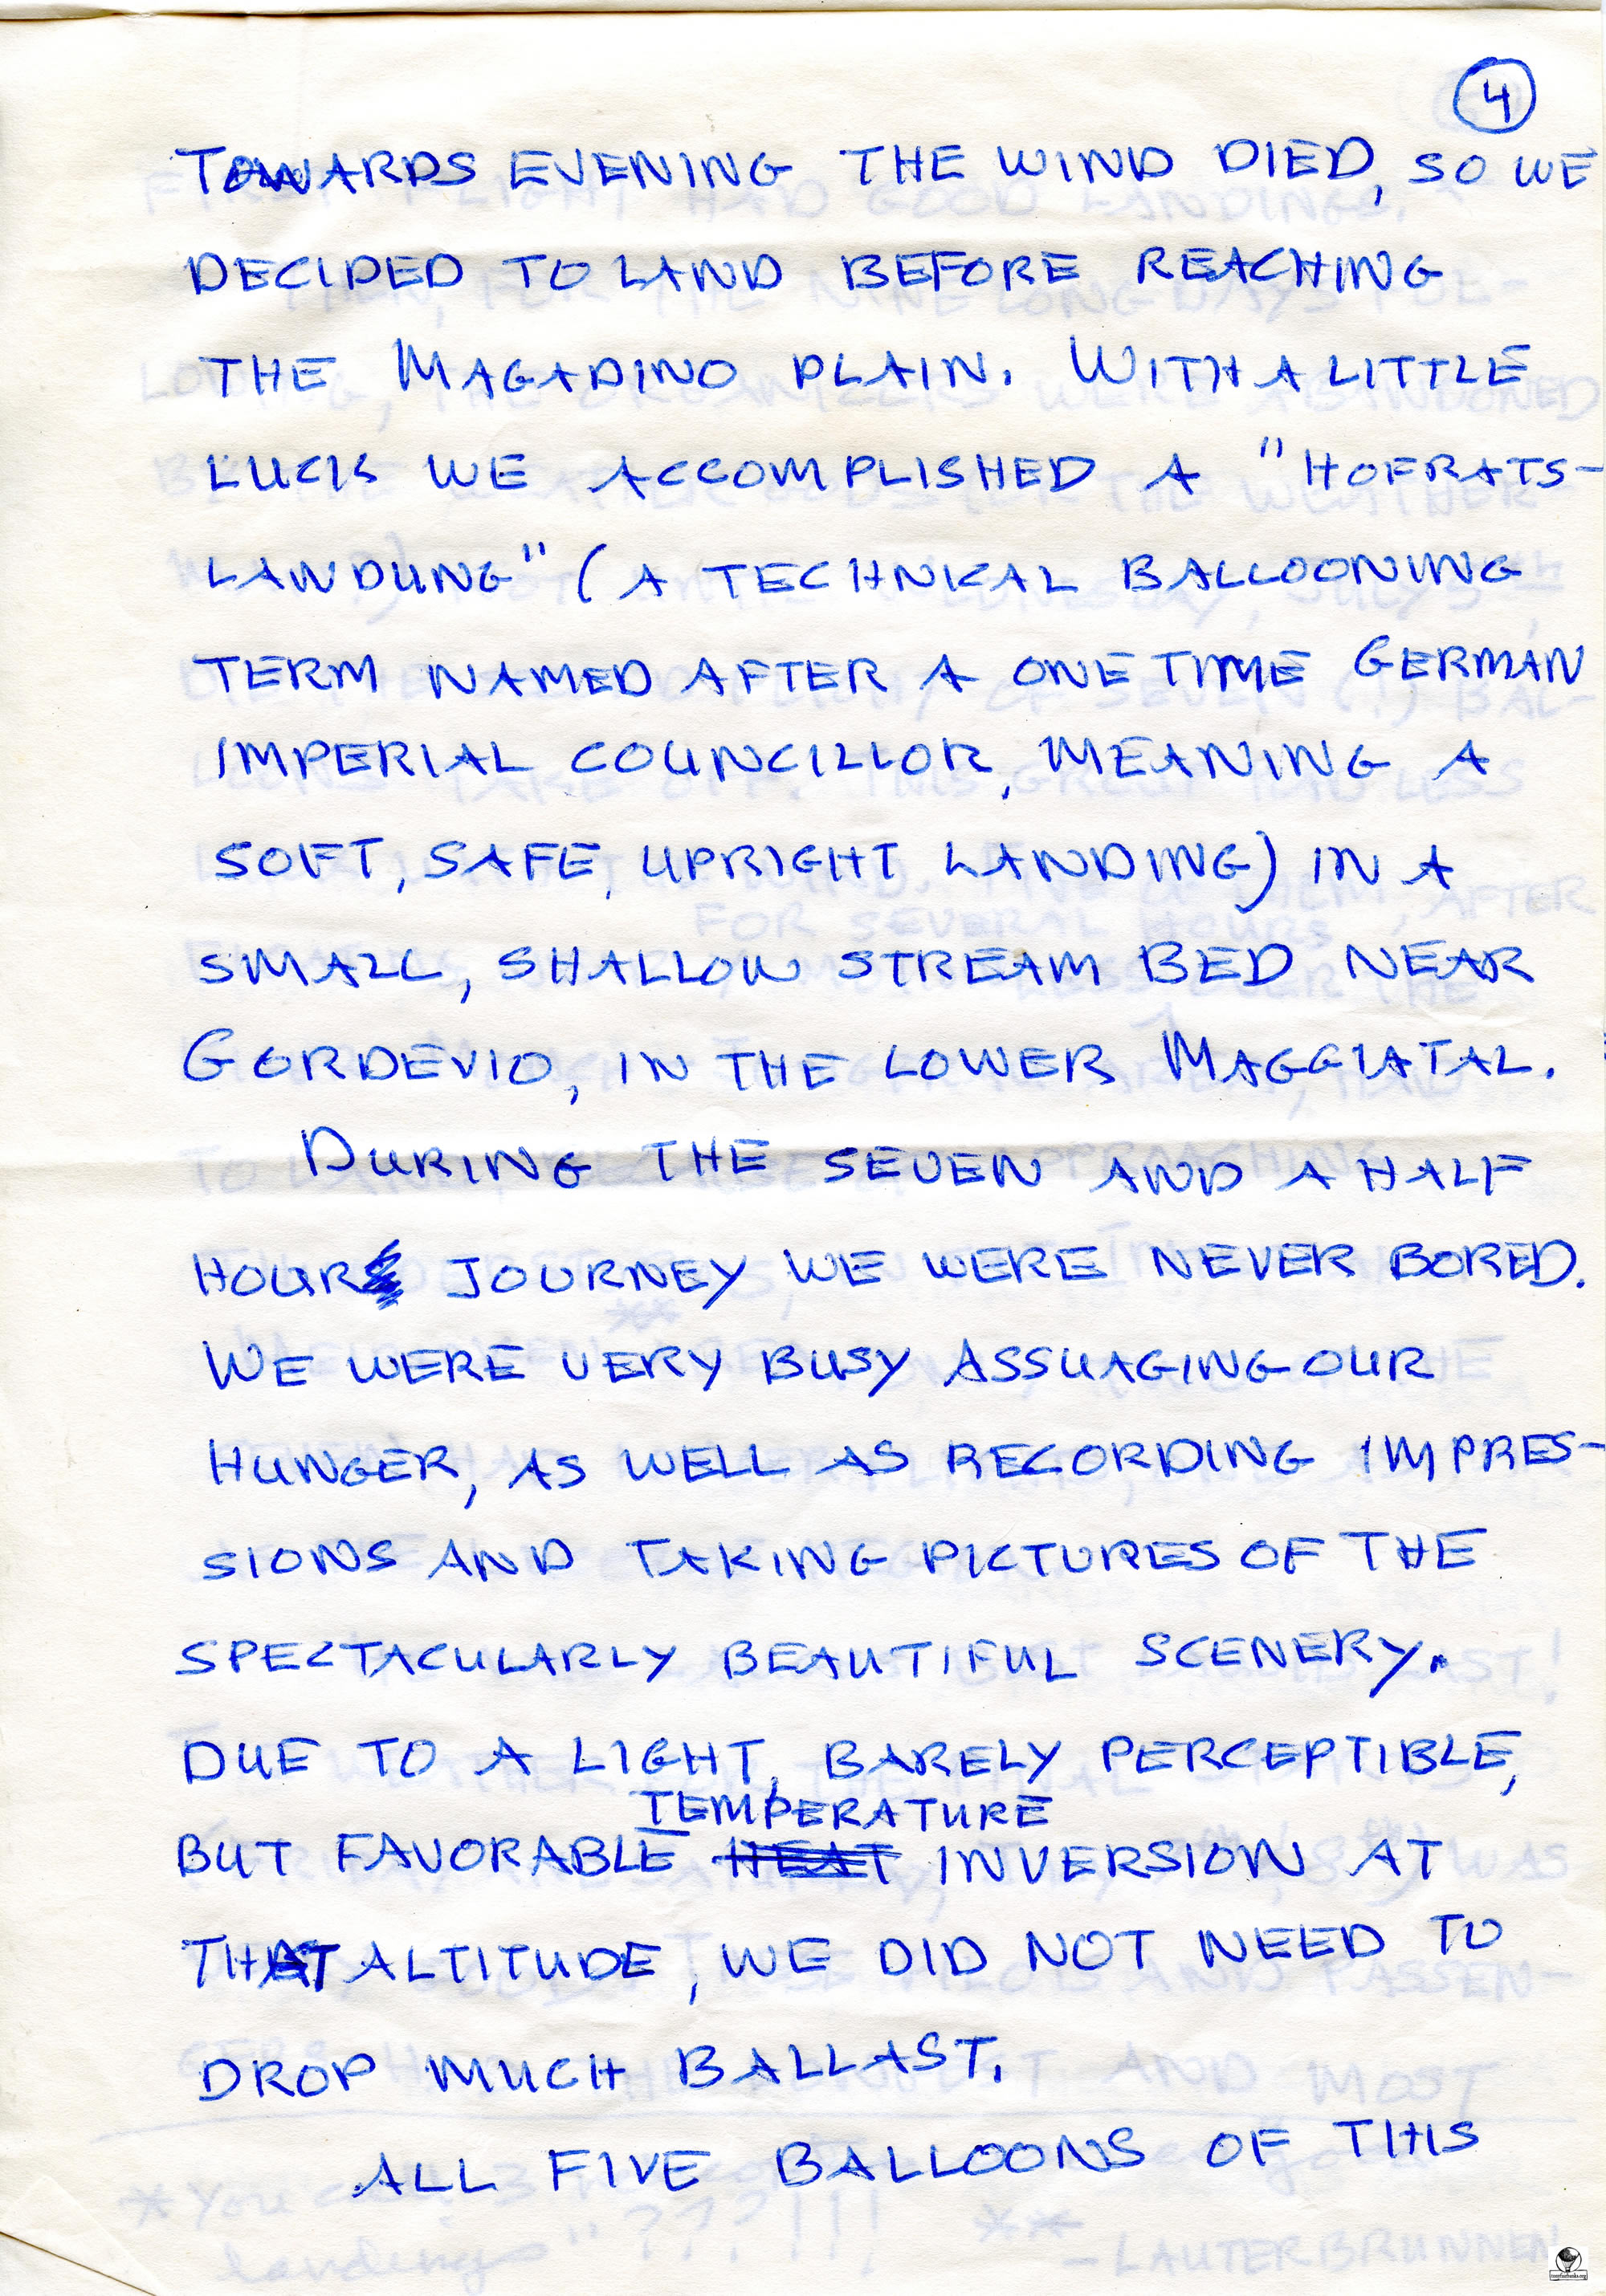 4
TOWARDS EVENING THE WIND DIED, SO WE
DECIDED TO LAND BEFORE REACHING
THE MAGADINO PLAIN. WITH A LITTLE
LUCK WE ACCOMPLISHED A "HOFRATS-
LANDUNG" (A TECHNICAL BALLOONING
TERM NAMED AFTER A ONE TIME GERMAN
IMPERIAL COUNCILLOR, MEANING A
SOFT, SAFE, UPRIGHT LANDING) IN A
SMALL, SHALLOW STREAM BED NEAR
GORDEVIO, IN THE LOWER MAGGIATAL.
DURING THE SEVEN AND A HALF
HOUR JOURNEY WE WERE NEVER BORED.
WE WERE VERY BUSY ASSUAGING OUR
HUNGER, AS WELL AS RECORDING IMPRES-
SIONS AND TAKING PICTURES OF THE
SPECTACULARLY BEAUTIFUL SCENERY.
DUE TO A LIGHT, BARELY PERCEPTIBLE,
TEMPERATURE
BUT FAVORABLE HEAT INVERSION AT
THAT ALTITUDE, WE DID NOT NEED TO
DROP MUCH BALLAST.
ALL FIVE BALLOONS OF THIS